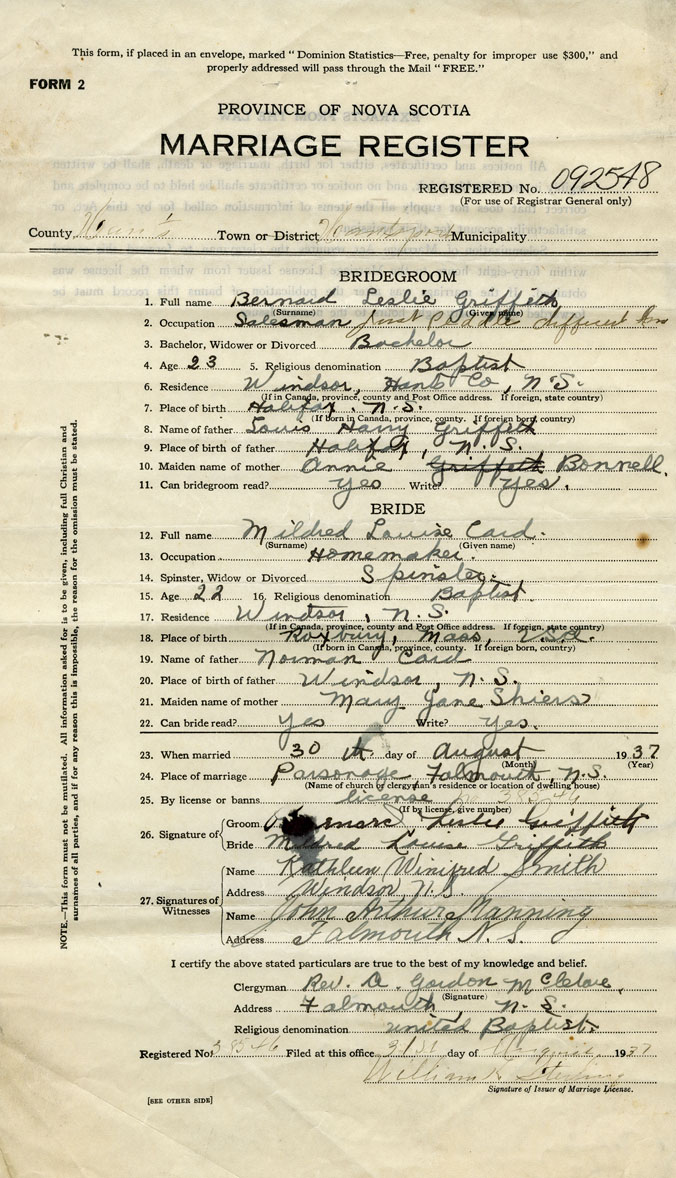 This form, if placed in an envelope, marked "Dominion Statistics—Free, penalty for improper use $300," and
properly addressed will pass through the Mail "FREE."
FORM 2
PROVINCE OF NOVA SCOTIA
MARRIAGE REGISTER
REGISTERED No. 092548
(For use of Registrar General only)
County Hants Town or District Hantsport Municipality
BRIDEGROOM
1. Full name Bernard Leslie Griffeth
(Surname) (Given name)
2. Occupation Salesman
3. Bachelor, Widower or Divorced Bachelor
4. Age 23 5. Religious denomination Baptist
6. Residence Windsor, Hants Co, N.S.
(If in Canada, province, county and Post Office address. If foreign, state country)
7. Place of birth Halifax, N.S.
(If born in Canada, province, county. If foreign born, country)
8. Name of father Louis Harry Griffeth
9. Place of birth of father Halifax, N.S.
10. Maiden name of mother Annie Griffeth Bonnell.
11. Can bridegroom read? yes Write? yes.
BRIDE
12. Full name Mildred Louise Card.
(Surname) (Given name)
13. Occupation Homemaker.
14. Spinster, Widow or Divorced Spinster.
15. Age 22 16. Religious denomination Baptist.
17. Residence Windsor, N.S.
(If in Canada, province, county and Post Office address. If foreign, state country)
18. Place of birth Roxbury, Mass, U.S.A.
(If born in Canada, province, county. If foreign born, country)
19. Name of father Norman Card
20. Place of birth of father Windsor, N.S.
21. Maiden name of mother Mary Jane Shiers
22. Can bride read? yes Write? yes.
23. When married 30 th day of August 1937
(Month) (Year)
24. Place of marriage Parsonage, Falmouth, N.S.
(Name of church or clergyman's residence or location of dwelling house)
25. By license or banns license
(If by license, give number)
26. Signature of Groom Leslie Griffith
Bride Mildred Louise Griffith
27. Signatures of Witnesses
Name Kathleen Winifred Smith
Address Windsor N.S.
Name John Arthur Manning
Address Falmouth N.S.
I certify the above stated particulars are true to the best of my knowledge and belief.
Clergyman Rev. A. Gordon
(Signature)
Address Falmouth, N.S.
Religious denomination United Baptist.
Registered No. Filed at this office 31st day of August 1937
William
Signature of Issuer of Marriage License.
[SEE OTHER SIDE]
NOTE.—This form must not be mutilated. All information asked for is to be given, including full Christian and
surnames of all parties, and if for any reason this is impossible, the reason for the omission must be stated.